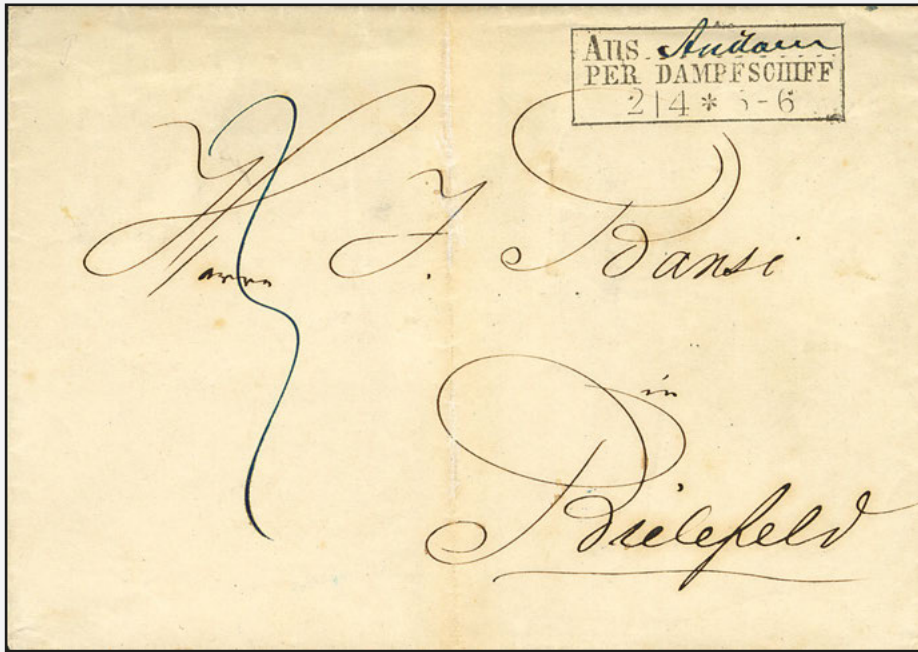 Aus Anclam
PER DAMPFSCHIFF
2|4 * 5-6
Herrn J. Bansi
3
in
Bielefeld